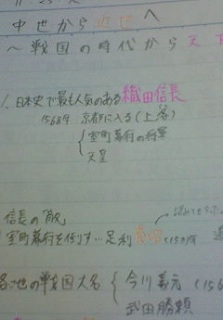 中世から近世へ
~戦国の時代から天
1. 日本史で最も人気のある織田信長
1568年 京都に入る(上洛)
室町幕府の将軍
天皇
信長の
室町幕府を倒す…足利
各地の戦国大名 { 今川義元 (156
武田勝頼